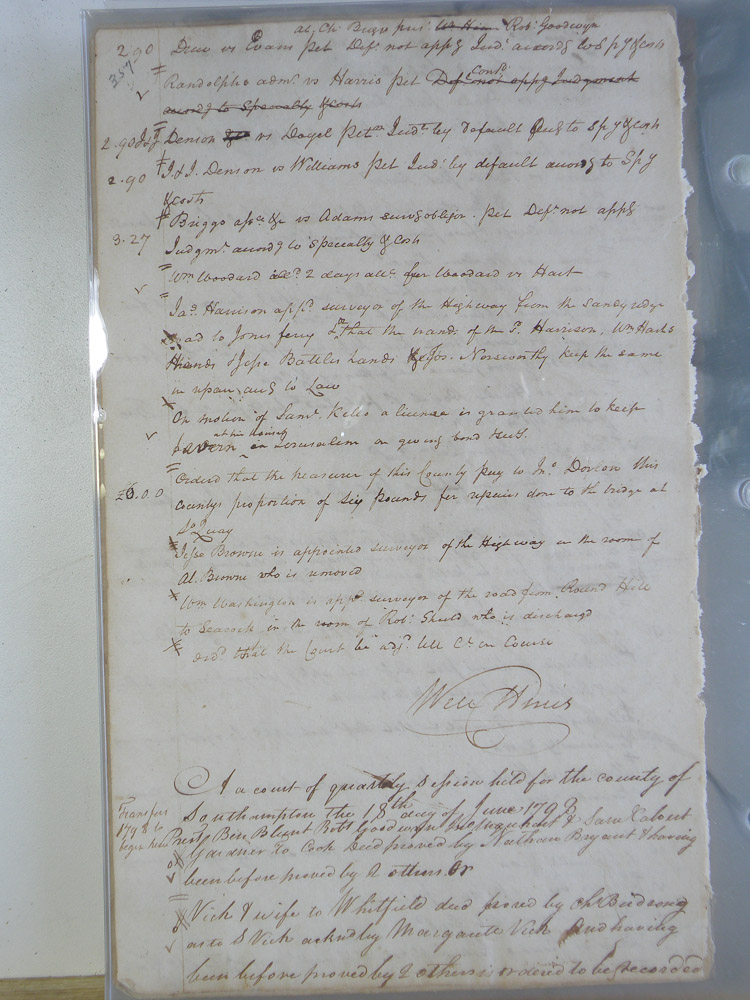 al. Ch. Briggs pres. Wm Hines Robt Goodwyn
2.90 Drew vs Evans pet Deft not appg Judt accordg to Spy & costs
357
Randolphs admr vs Harris pet Deft not appg Judgment Contd
accordg to Specialty & costs
2.90 J&J Denson vs Doyel Petn Judt by default accg to Spy & costs
2.90 J & J. Denson vs Williams Pet Judt by default accordg to Spy
& costs
Briggs assee &c vs Adams survg obligor. pet Deft not appg
3.27 Judgmt accordg to Specialty & Costs
Wm Woodard 2 days for Woodard vs Hart
Jas Harrison appd surveyor of the Highway from the sandy ridge
road to Jones ferry & that the hands of the Harrison, Wm Harts
Hands & Jesse Battles hands & Jos. Norsworthy keep the same
in repair accg to Law
On motion of Saml Kello a license is granted him to keep
tavern at his House in Jerusalem on giving bond &c
Ordered that the treasurer of this County pay to Jno Dorson this
£6.0.0 Countys proportion of six pounds for repairs done to the bridge at
So Quay
Jesse Browne is appointed surveyor of the Highway in the room of
Al. Browne who is removed
Wm Washington is appd surveyor of the road from Round Hill
to Seacock in the room of Robt who is dischargd
ord that the Court be adjd till Ct in Course
Will Hines
At a court of quartly Session held for the county of
Southampton the 18th day of June 1798
Transfers
1798 to
begin here
Prest Ben Blunt Robt Goodwyn & Saml Calvert
Gardner to Cook Deed proved by Nathan Bryant & having
been before proved by 2 others. Or
Vick & wife to Whitfield deed proved by Ch Birdsong
as to S Vick acknd by Margarate Vick And having
been before proved by 2 others is ordered to be recorded